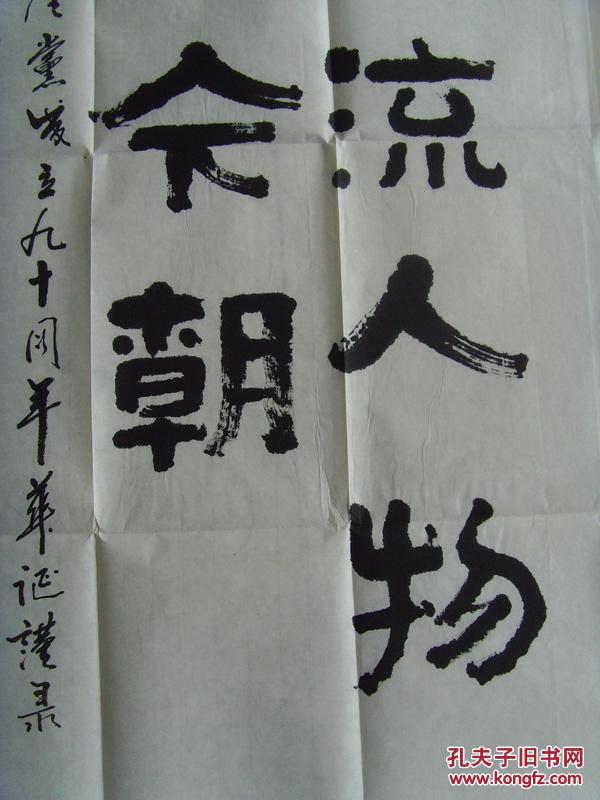 流人物
今朝
党成立九十周年华证谨录
孔夫子旧书网
www.kongfz.com